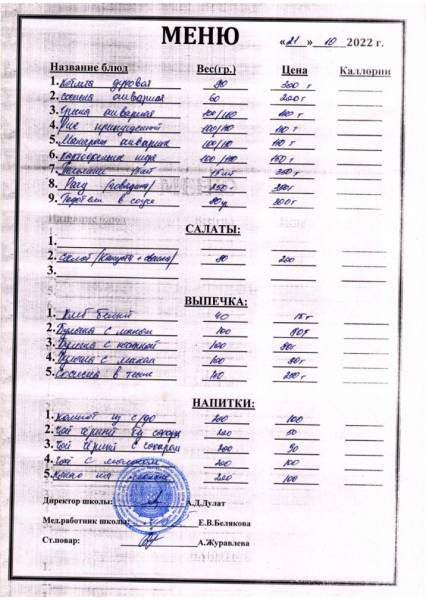 МЕНЮ
«21» 10 2022 г.
Название блюд Вес(гр.) Цена Каллории
1. котлета 90 300 г
2. сосиска отварная 60 200 г
3. Гречка отварная 100/180 110 г
4. Рис припущенный 100/180 110 т
5. Макароны отварные 100/180 110 т
6. картофельное пюре 100/180 150 г
7. Пельмени
8. Рагу (говядина) 250 г
9. Тефтели в соусе 90 300 г
Название блюд
САЛАТЫ:
1.
2. Салат (капуста + свекла) 90 200
3.
ВЫПЕЧКА:
1. Хлеб белый 40 15 г
2. Булочка с маком 100 80 г
3. Булочка с 100 80 г
4. Булочка с маком 100 80 г
5. Сосиска в тесте 140
НАПИТКИ:
1. Компот из с/ф 200 100
2. Чай чёрный без сахара 200 50
3. Чай чёрный с сахаром 200 90
4. Чай с молоком 200 100
5. Какао на молоке 200 100
Директор школы: А.Д.Дулат
Мед.работник школы: Е.В.Белякова
Ст.повар: А.Журавлева